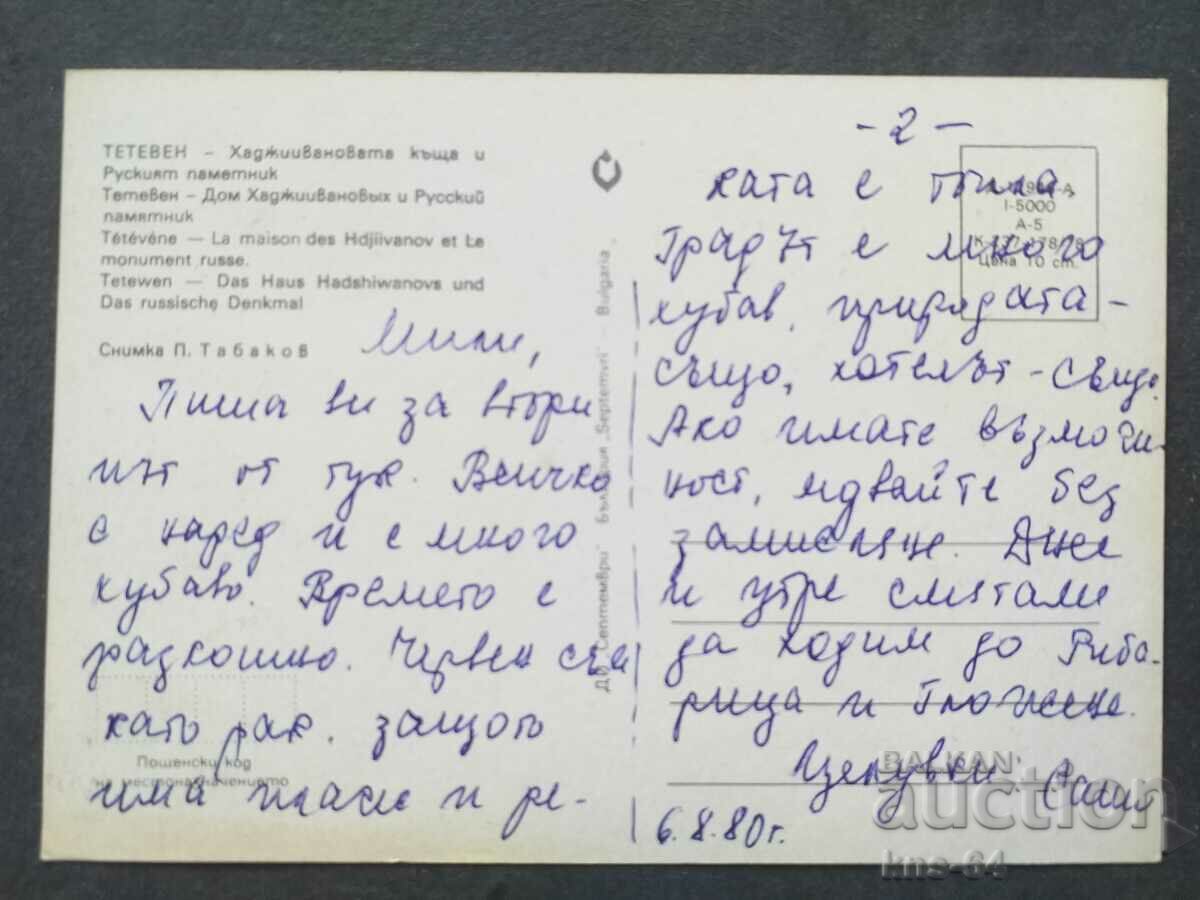 ТЕТЕВЕН – Хаджиивановата къща и
Руският паметник
Тетевен – Дом Хаджиивановых и Русский
памятник
Tétévéne — La maison des Hdjiivanov et Le
monument russe.
Tetewen — Das Haus Hadshiwanovs und
Das russische Denkmal
Снимка П. Табаков
Мили,
Пиша ви за втори
път от тук. Всичко
е наред и е много
хубаво. Времето е
разкошно. Червен съм
като рак, защото
има плаж и ре-
Пощенски код
на местоназначението
ДП „Септември" България „Septemvri" — Bulgaria
- 2 -
ката е топла.
Градът е много
хубав, природата –
също, хотелът – също.
Ако имате възмож-
ност, идвайте без
замисляне. Днес
и утре смятаме
да ходим до Риба-
рица и Гложене.
Целувки:
6.8.80г.
I-5000
А-5
Цена 10 ст.
BALKAN
auction
kns-64